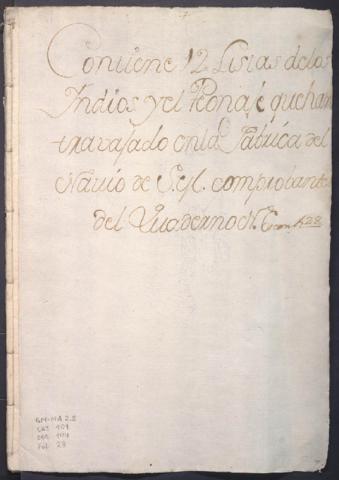 Contiene 12 Listas de los
Indios y el Peonaje que han
travajado en la Fabrica del
Navio de S.M. comprobantes
del Quaderno N.
28
GM-MA 2.8
CAJ 101
FOL 28